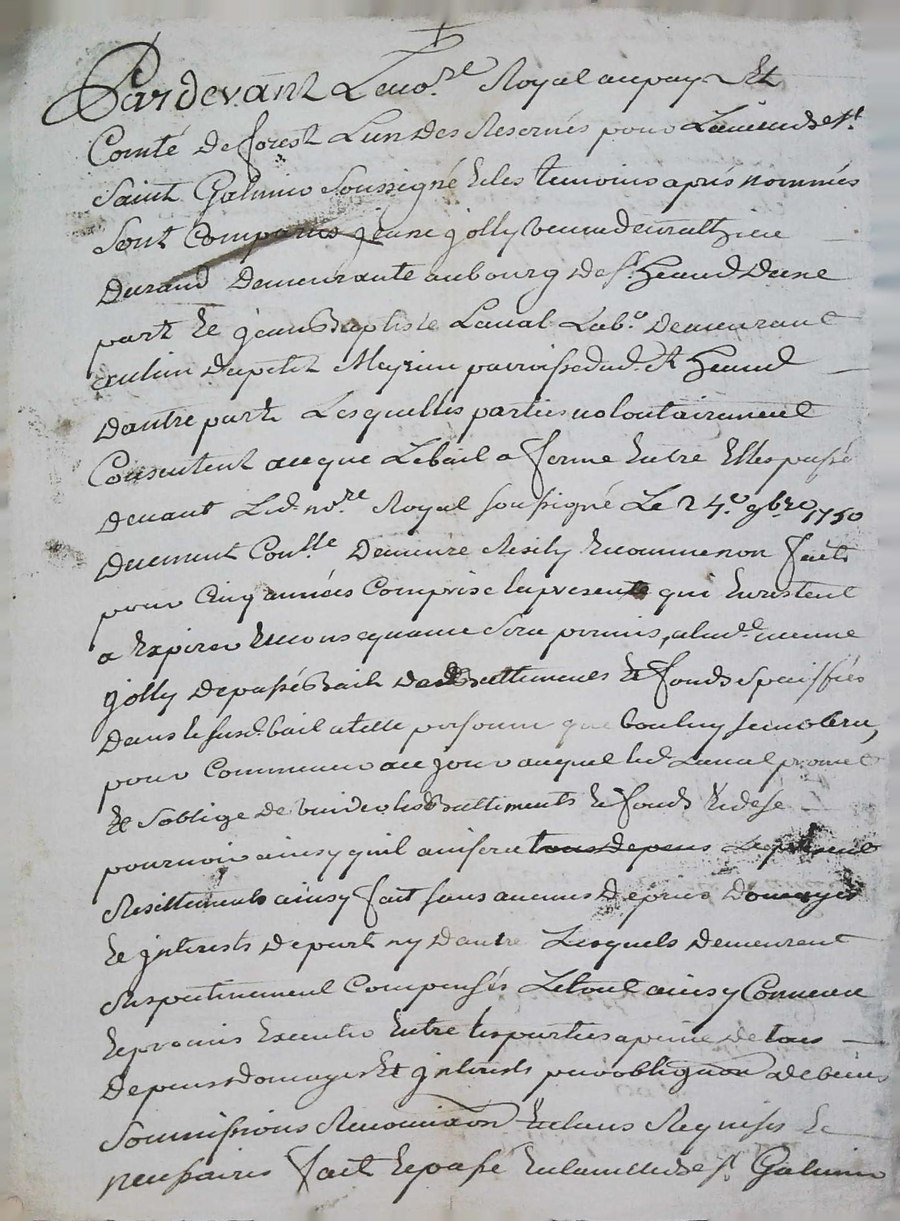 Pardevant Le no.re Royal au pays Et
Comté de forest L'un des Reservés pour La ville de St
Saint Galmier Soussigné Et les temoins aprés nommés
Sont Comparus jeane jolly veuve de mathieu
Durand Demeurante au bourg de St. heand Dune
part Et jean Baptiste Laval Lab.r Demeurant
au lieu du petit Meyrieu parroisse dud. St heand
Dautre part Lesquelles parties volontairement
Consentent a ce que Le bail a ferme Entre Elles passé
devant Led. no.re Royal soussigné Le 24.e 9bre 1750
Duement Conllé Demeure Resilié Et comme non fait
pour Cinq années Comprise la presente qui En restent
a Expirer En consequance Sera permis, a lad.e veuve
jolly de passé Bail des Battiments Et fonds Speciffiés
Dans le susd. bail a telle personne que bon luy semblera,
pour Commencer au jour auquel led. Laval promet
Et soblige de vuider les Battiments Et fonds Et de se
pourvoir ainsy quil avisera tous depens Le present
Resilliement ainsy fait sans aucuns Depens Domages
Et jnterests de part ny Dautre Lesquels demeurent
Respectivement Compensés Le tout ainsy Convenu
Et promis Executer Entre les parties a peine de tous
Depens domages Et jnterests par obligaon de biens
Soumissions Renonciaon Et clauses Requises Et
necessaires fait Et passé En la ville de St. Galmier